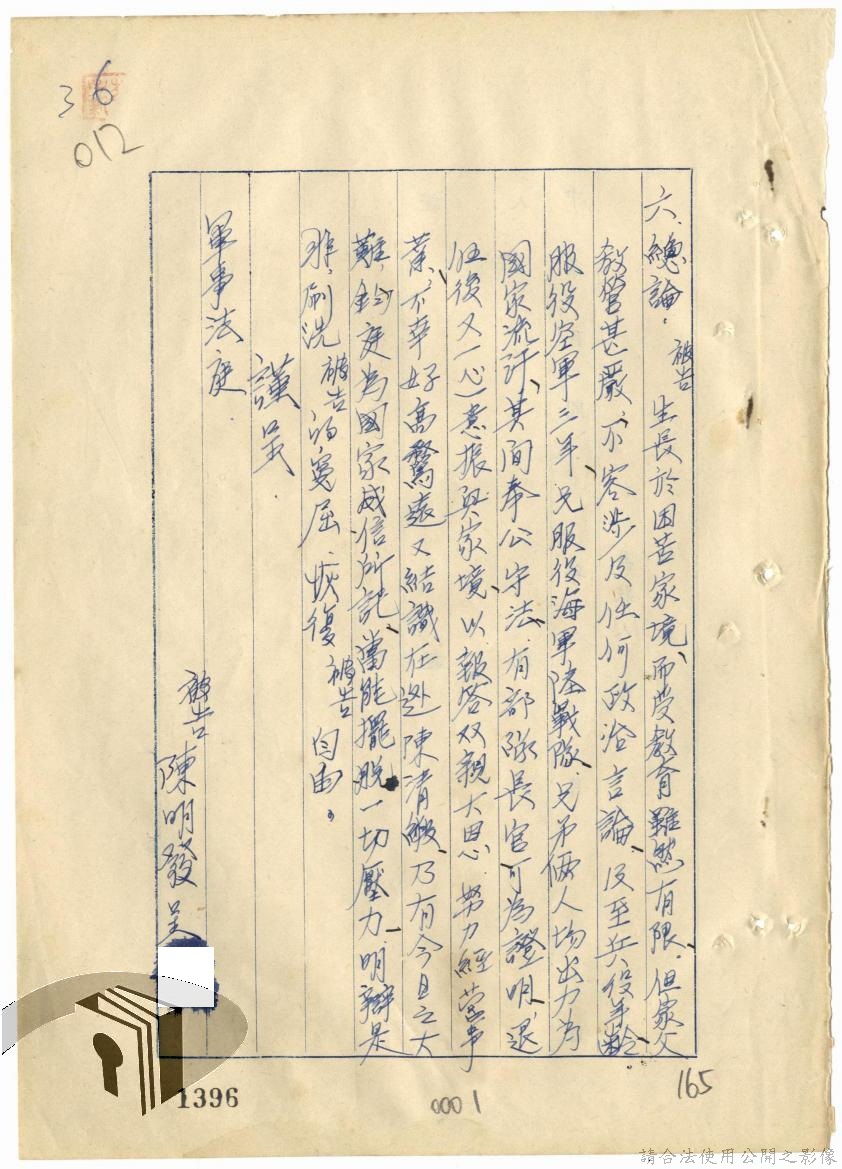 36
012
六、總論。被告生長於困苦家境、而受教育雖然有限、但家父
教管甚嚴、不容涉及任何政治言論、及至兵役年齡、
服役空軍三年、兄服役海軍陸戰隊、兄弟倆人均出力為
國家流汗、其間奉公守法、有部隊長官可為證明、退
伍後又一心一意振興家境、以報答双親大恩、努力經營事
業、不幸好高騖遠又結識在逃陳清 乃有今日之大
難、鈞庭為國家威信所託、當能擺脫一切壓力、明辯是
非、刷洗被告的冤屈、恢復被告自由。
謹呈
軍事法庭
被告 陳明發 呈
1396
0001
165
請合法使用公開之影像